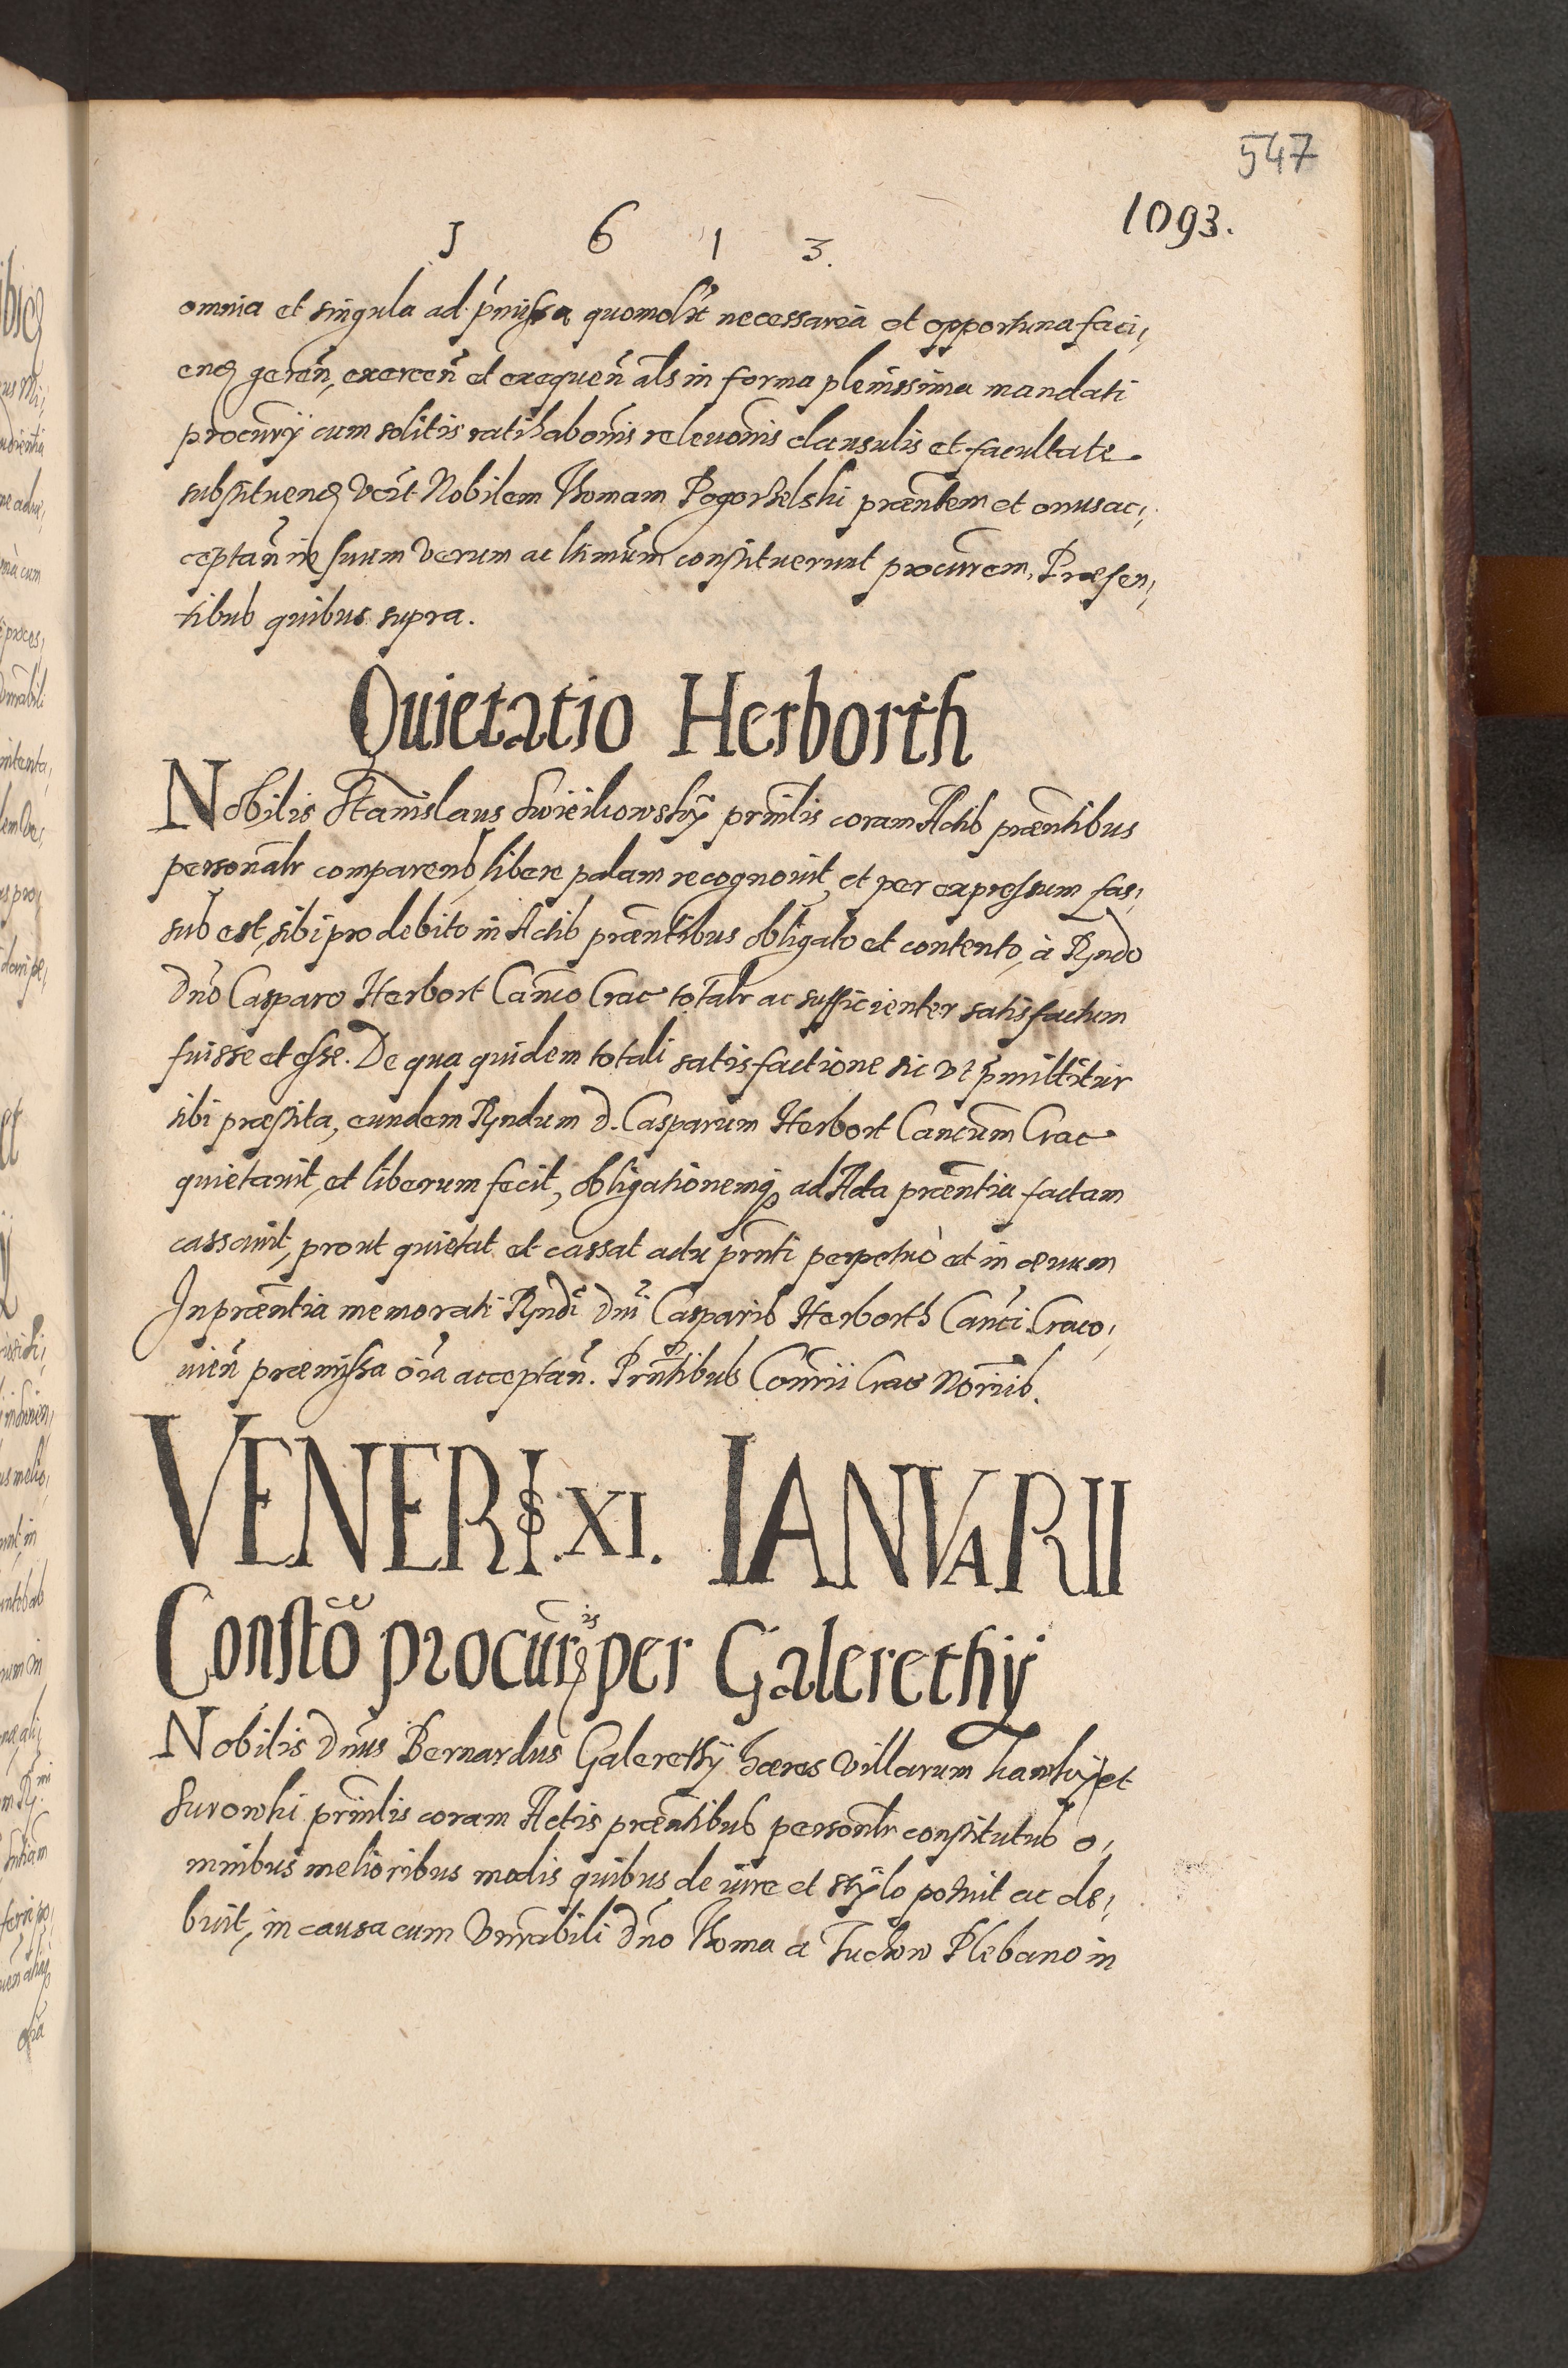 547
1093.
1 6 1 3.
omnia et singula ad p̃missa quomodlt necessaria et opportuna faci,
enđ gereñ, exerceñ et exequeñ als in forma plenissima mandati
procũrij cum solitis ratihabõnis releuõnis clausulis et facultate
substituenđ Vctt Nobilem Thomam Pogorzelski præntem et onus ac,
ceptañ in suum Verum ac ltimũm constituerunt procũrem, Præsen,
tibus quibus supra.
Quietatio Herborth
Nobilis Stanislaus Swieikowsky prinlis coram Actis præntibus
personalr comparens, libere palam recognouit, et per expressum fas,
sus est, sibi pro debito in Actis præntibus obligato et contento, à Rndo
Dno Casparo Herbort Canco Crac totalr ac sufficienter satisfactum
fuisse et esse. De qua quidem totali satisfactione sic vt p̃mittitur
sibi præstita, eundem Rndum D. Casparum Herbort Cancum Crac
quietauit, et liberum fecit, obligationemq; ad Acta præntia factam
cassauit, prout quietat et cassat actu prnti perpetuò et in æuum
In præntia memorati Rndi Dni Casparis Herborth Canci Craco,
uieñ præmissa oĩa acceptañ. Prntibus Conrii Crac Notriis.
VENERIS .XI. IANVARII
Constõ procũris per Galerethij
Nobilis Dnus Bernardus Galerethij hæres Villarum et
Surowki prinlis coram Actis præntibus personlr constitutus o,
mnibus melioribus modis quibus de iure et stylo potuit ac de,
buit, in causa cum Vnrabili Dno Thoma a Tuchow Plebano in